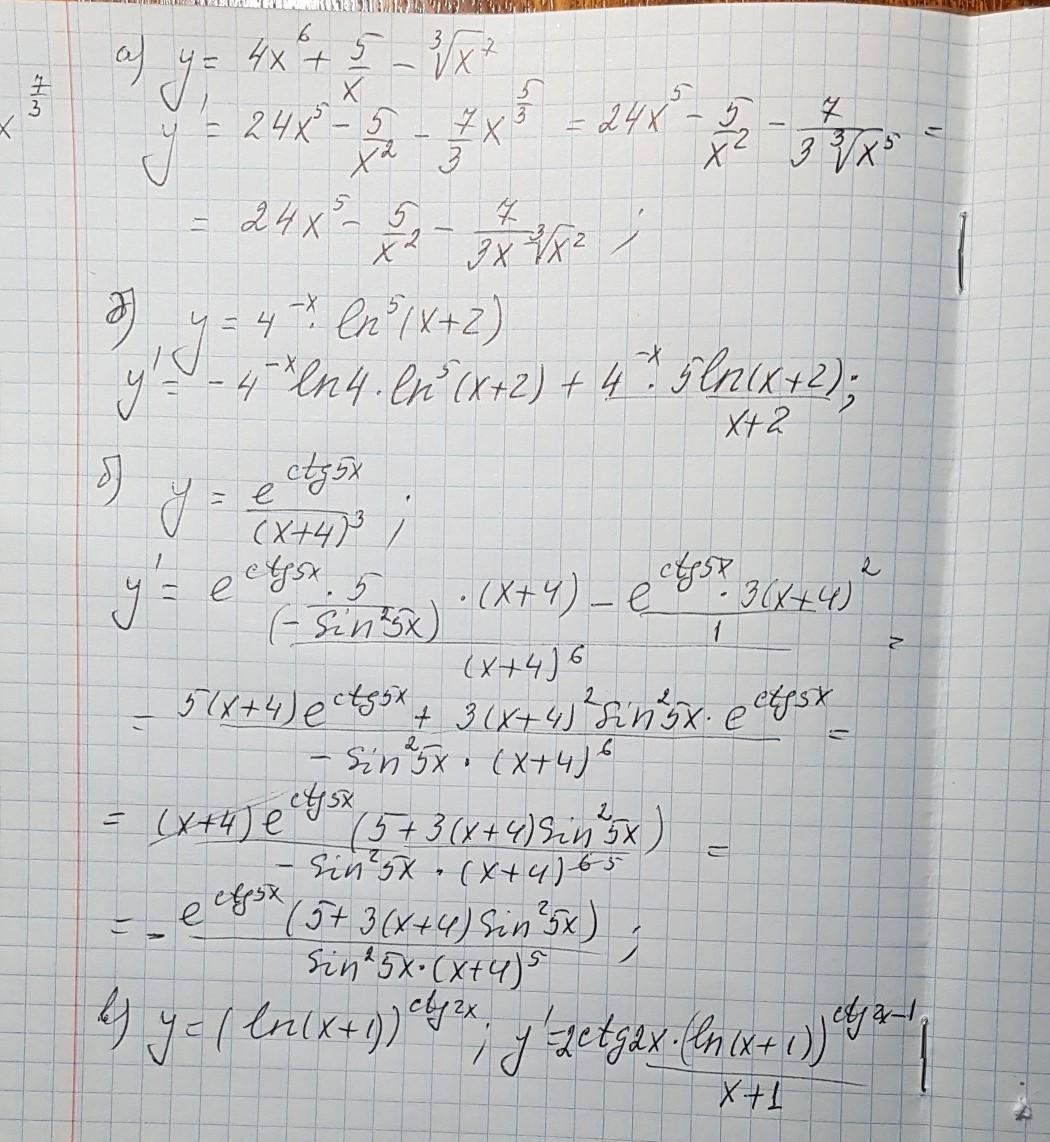 а) y = 4x⁶ + 5/x − ∛x⁷
x^(7/3)
y' = 24x⁵ − 5/x² − 7/3 x^(5/3) = 24x⁵ − 5/x² − 7/(3∛x⁵) =
= 24x⁵ − 5/x² − 7/(3x∛x²) ;
y = 4^(−x) · ln⁵(x+2)
y' = −4^(−x) ln4 · ln⁵(x+2) + 4^(−x) · 5ln(x+2)/(x+2);
б) y = e^(ctg5x)/(x+4)³ ;
y' = (e^(ctg5x) · 5/(−sin²5x) · (x+4) − e^(ctg5x) · 3(x+4)²/1)/(x+4)⁶ =
= (5(x+4)e^(ctg5x) + 3(x+4)² sin²5x · e^(ctg5x))/(−sin²5x · (x+4)⁶) =
= (x+4)e^(ctg5x) (5+3(x+4)sin²5x)/(−sin²5x · (x+4)^(6 5)) =
= − e^(ctg5x) (5+3(x+4)sin²5x)/(sin²5x·(x+4)⁵) ;
в) y = (ln(x+1))^(ctg2x) ; y' = 2ctg2x·(ln(x+1))^(ctg2x−1)/(x+1)